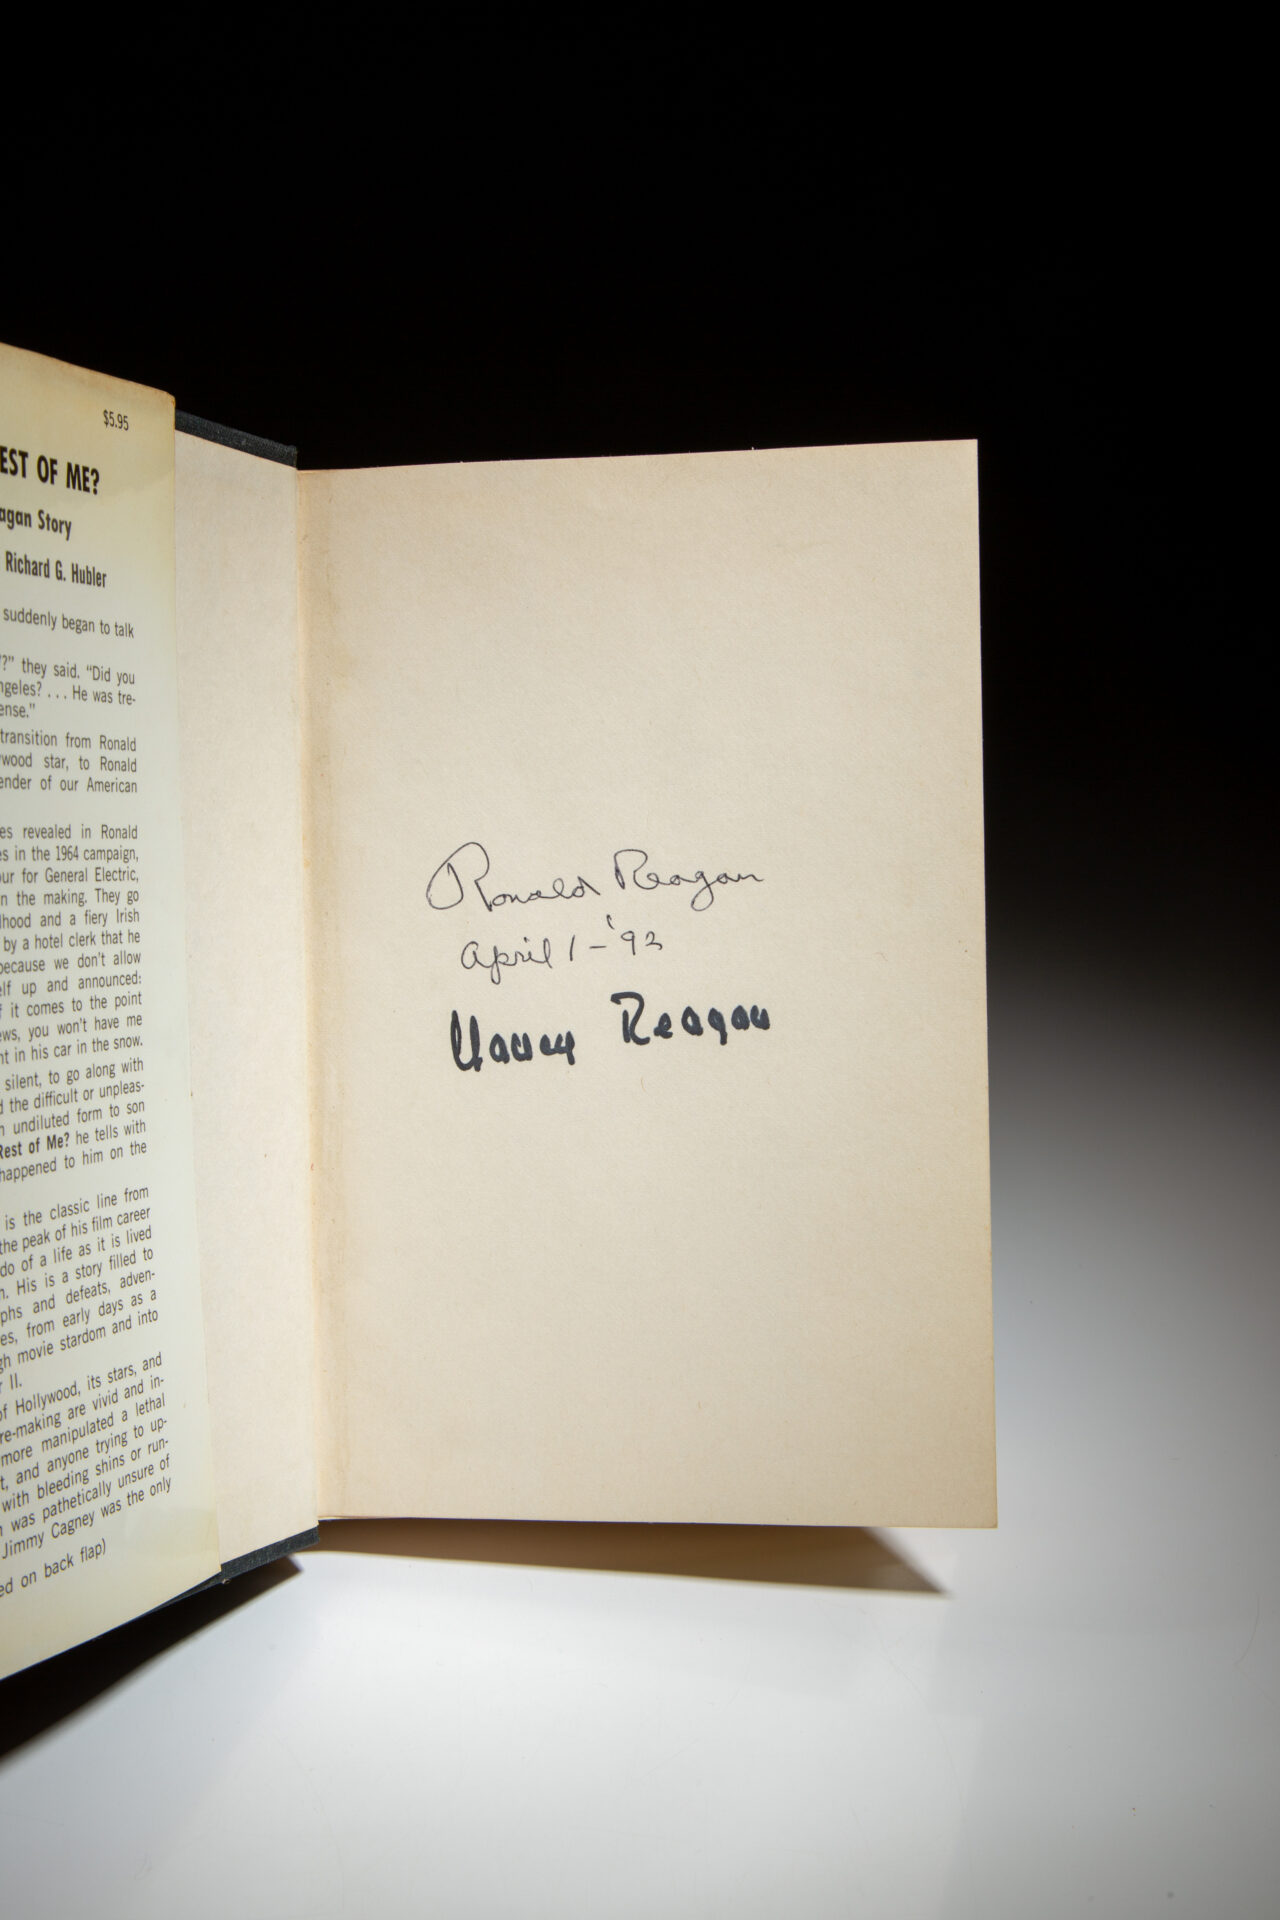 $5.95
EST OF ME?
agan Story
Richard G. Hubler
suddenly began to talk
?" they said. "Did you
ngeles? . . . He was tre-
ense."
transition from Ronald
wood star, to Ronald
ender of our American
es revealed in Ronald
es in the 1964 campaign,
our for General Electric,
n the making. They go
dhood and a fiery Irish
by a hotel clerk that he
because we don't allow
elf up and announced:
f it comes to the point
ews, you won't have me
nt in his car in the snow.
silent, to go along with
d the difficult or unpleas-
n undiluted form to son
Rest of Me? he tells with
happened to him on the
is the classic line from
the peak of his film career
do of a life as it is lived
n. His is a story filled to
phs and defeats, adven-
es, from early days as a
gh movie stardom and into
r II.
of Hollywood, its stars, and
re-making are vivid and in-
more manipulated a lethal
t, and anyone trying to up-
with bleeding shins or run-
n was pathetically unsure of
Jimmy Cagney was the only
ed on back flap)
Ronald Reagan
April 1-'92
Nancy Reagan